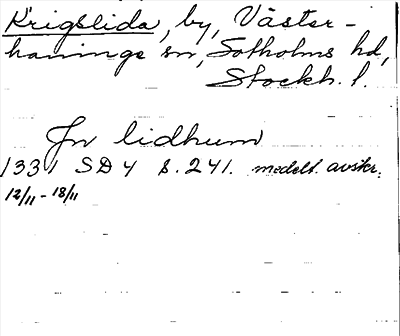 Krigslida, by, Väster-
hanings sn, Sotholms hd,
Stockh. l.
Jn lidhum
1331 SD 4 s. 241. medelt. avskr.
12/11 - 18/11